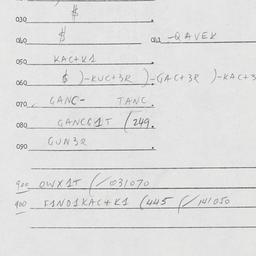 030 $
040 $ 042 -QAVEK
050 KAC+K1
060 $ )-KUC+3R )-GAC+3R )-KAC+3
070 GANC- TANC.
080 GANCG1T (249.
090 GUN3R
900 OWX1T (/031070
900 F1ND1KAC+K1 (445 (/141050